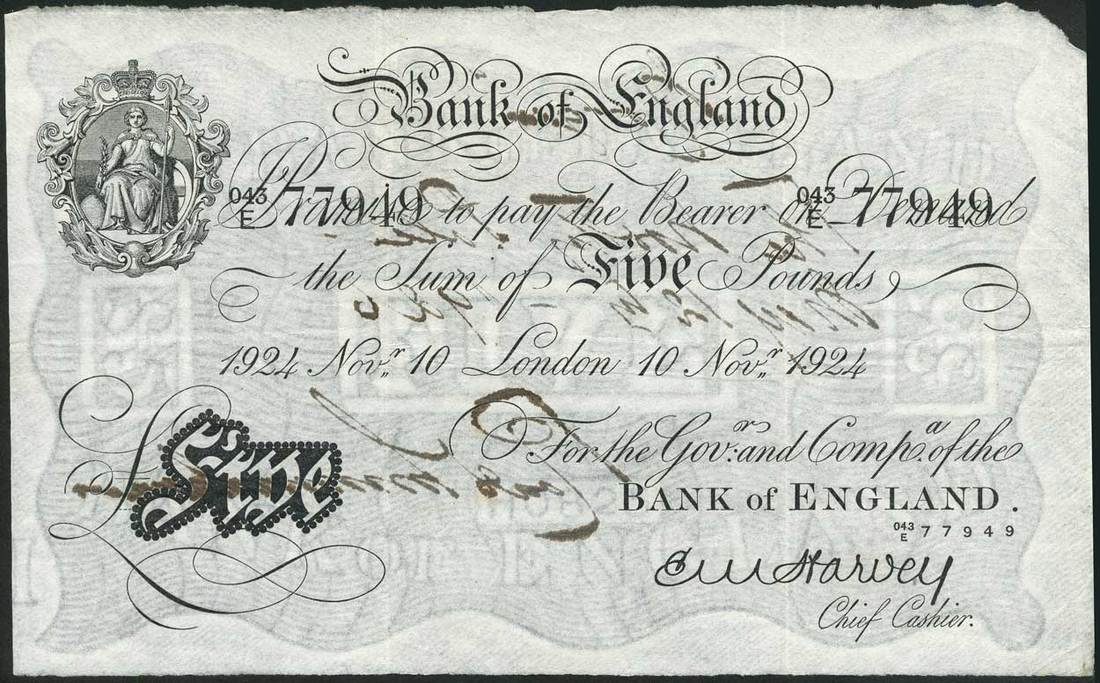 Bank of England
043/E 77949 043/E 77949
I Promise to pay the Bearer on Demand
the Sum of Five Pounds
1924 Novr. 10 London 10 Novr. 1924
For the Govr. and Compa. of the
BANK of ENGLAND.
£ Five
043/E 77949
E M Harvey
Chief Cashier.